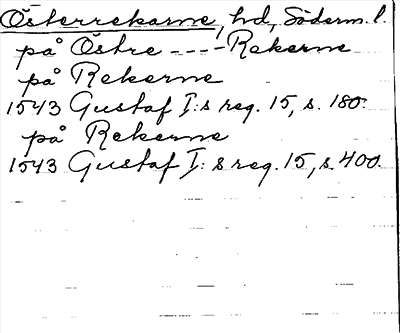 Österrekarne, hd, Söderm. l.
på Östre ---- Rekerne
på Rekerne
1543 Gustaf I:s reg. 15, s. 180.
på Rekerne
1543 Gustaf I:s reg. 15, s. 400.